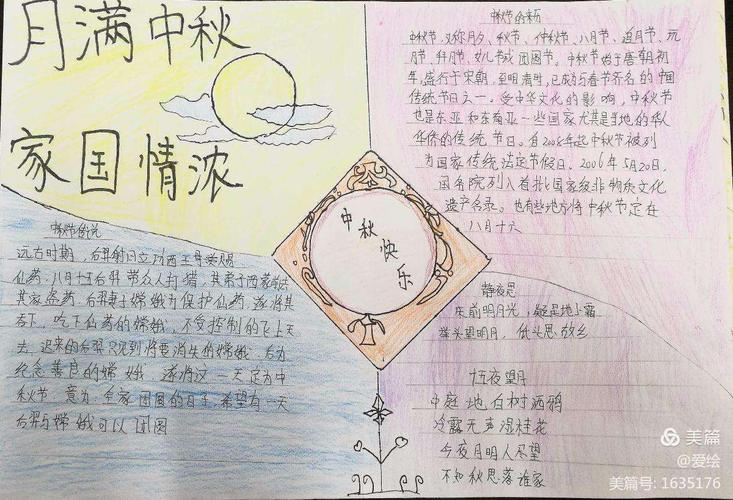 月满中秋
家国情浓
中秋节的来历
中秋节，又称月夕、秋节、仲秋节、八月节、追月节、玩
月节、拜月节、女儿节或团圆节。中秋节始于唐朝初
年，盛行于宋朝，至明清时，已成为与春节齐名的中国
传统节日之一。受中华文化的影响，中秋节
也是东亚和东南亚一些国家尤其是当地的华人
华侨的传统节日。自2008年起中秋节被列
为国家传统法定节假日。2006年5月20日，
国务院列入首批国家级非物质文化
遗产名录。也有些地方将中秋节定在
八月十六
中秋快乐
远古时期，后羿射日立功西王母赏赐
仙药，八月十五后羿带众人打猎，其弟子西蒙
其家盗药，后羿妻子嫦娥为保护仙药，遂将其
吞下，吃下仙药的嫦娥，不受控制的飞上天
去，迟来的后羿只见到将要消失的嫦娥，后为
纪念善良的嫦娥，遂将这一天定为中
秋节，意为全家团圆的日子，希望有一天
后羿与嫦娥可以团圆
静夜思
床前明月光，疑是地上霜
举头望明月，低头思故乡
十五夜望月
中庭地白树洒鸦
冷露无声湿桂花
今夜月明人尽望
不知秋思落谁家
美篇
@爱绘
美篇号: 1635176